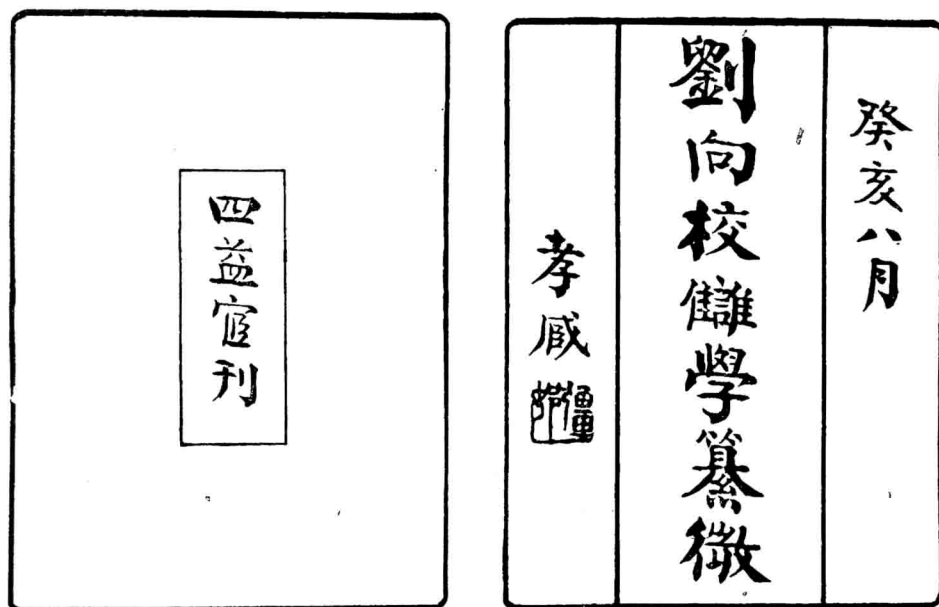 癸亥八月
劉向校讎學纂微
孝臧
四益宧刊